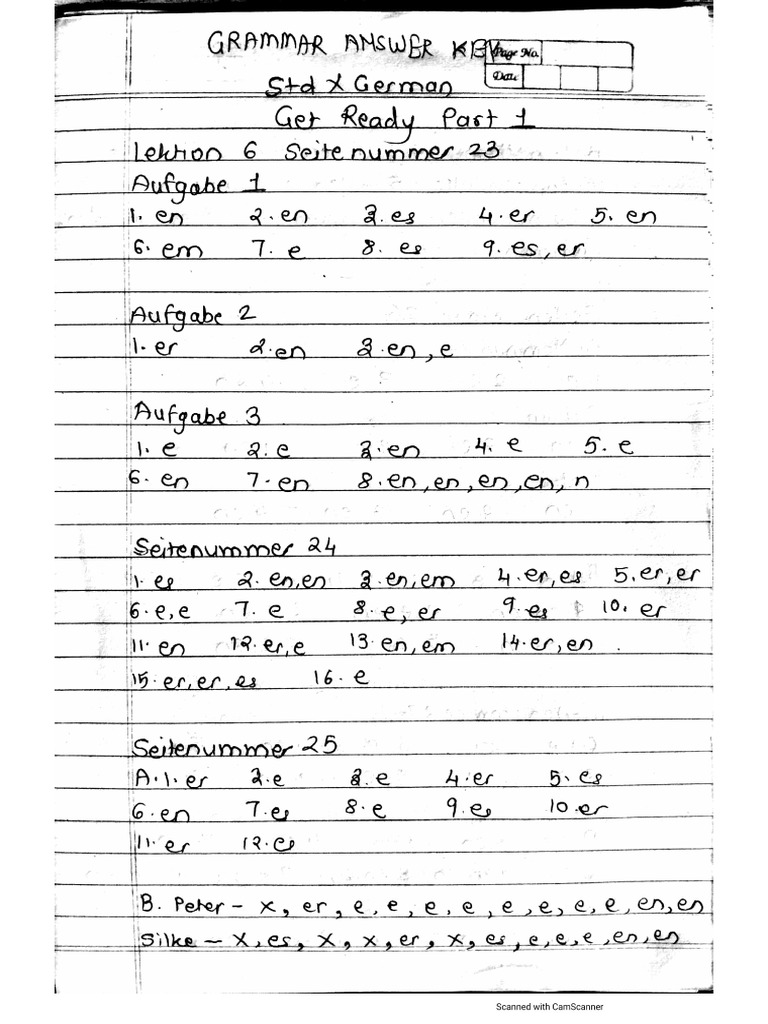 GRAMMAR ANSWER KEY
Page No.
Date
Std X German
Get Ready Part 1
Lektion 6 Seitenummer 23
Aufgabe 1
1. en 2. en 3. es 4. er 5. en
6. em 7. e 8. es 9. es, er
Aufgabe 2
1. er 2. en 3. en, e
Aufgabe 3
1. e 2. e 3. en 4. e 5. e
6. en 7. en 8. en, en, en, en, n
Seitenummer 24
1. es 2. en, en 3. en, em 4. er, es 5. er, er
6. e, e 7. e 8. e, er 9. es 10. er
11. en 12. er, e 13. en, em 14. er, en.
15. er, er, es 16. e
Seitenummer 25
A. 1. er 2. e 3. e 4. er 5. es
6. en 7. es 8. e 9. es 10. er
11. er 12. es
B. Peter - x, er, e, e, e, e, e, e, e, e, en, en
Silke - x, es, x, x, er, x, es, e, e, e, en, en
Scanned with CamScanner